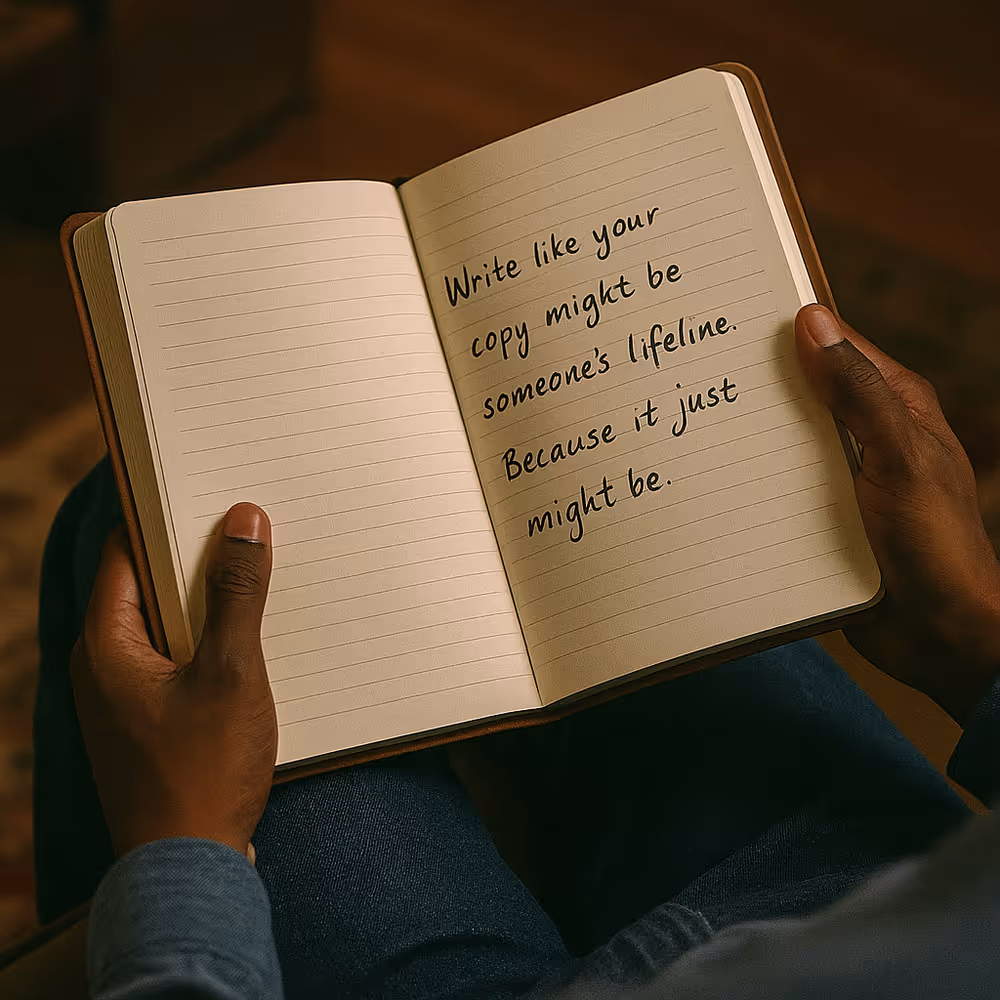 Write like your
copy might be
someone's lifeline.
Because it just
might be.